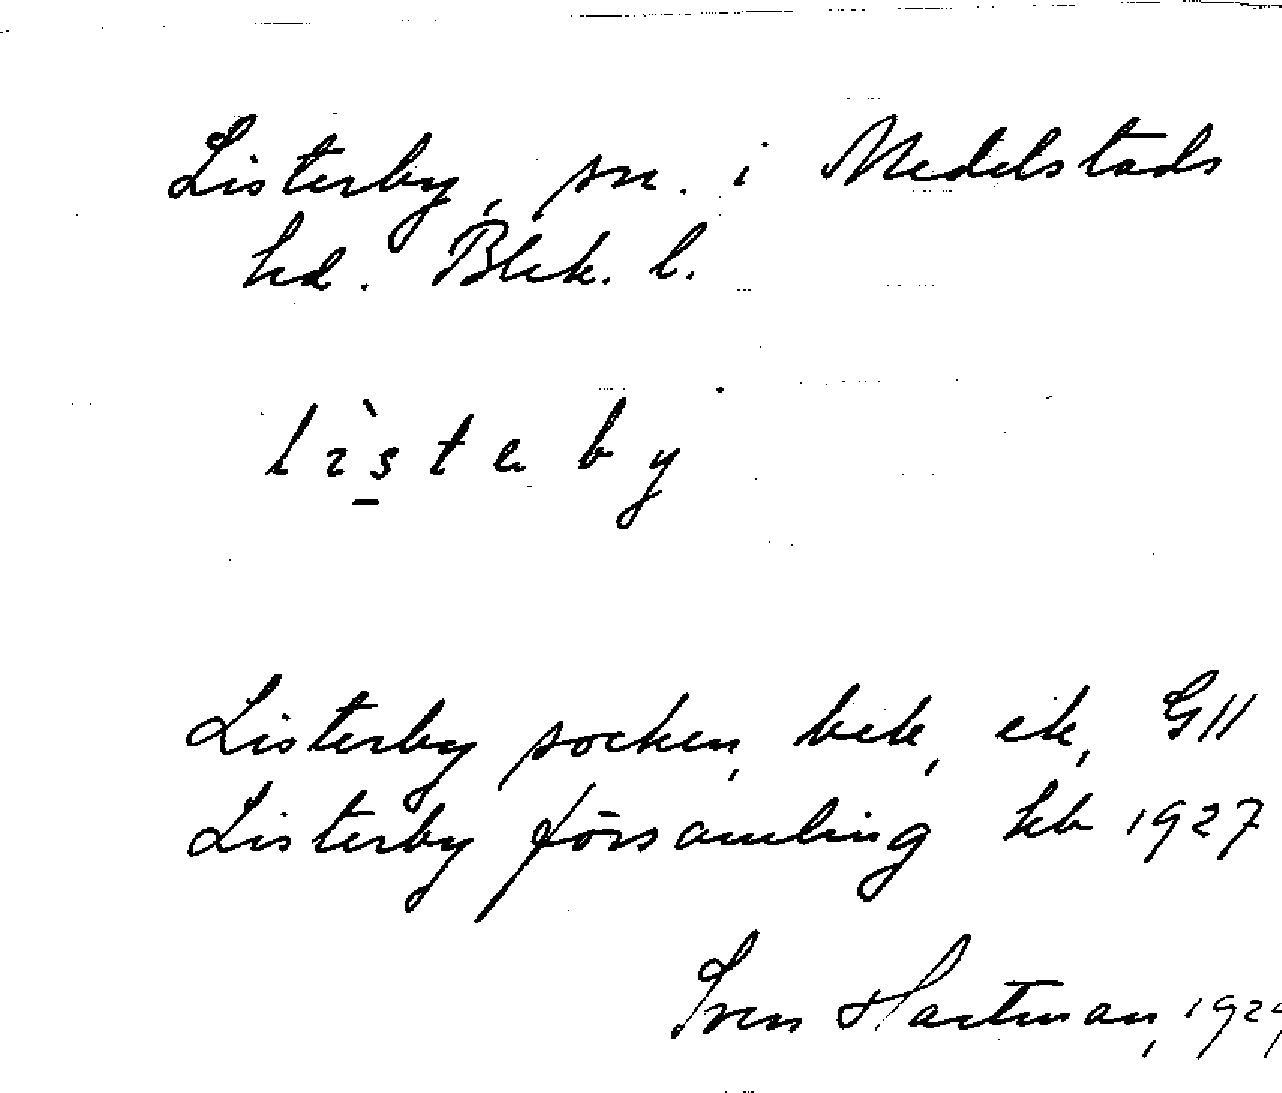 Listerby, sn. i Medelstads
hd. Blek. l.
lìsteby
Listerby socken, bek, ek, G11
Listerby församling kb 1927
Sven Hartman, 1929